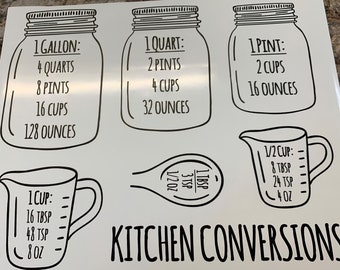 1 GALLON:
4 QUARTS
8 PINTS
16 CUPS
128 OUNCES
1 QUART:
2 PINTS
4 CUPS
32 OUNCES
1 PINT:
2 CUPS
16 OUNCES
1 CUP:
16 TBSP
48 TSP
8 OZ
1 TBSP
3 TSP
1/2 OZ
1/2 CUP:
8 TBSP
24 TSP
4 OZ
KITCHEN CONVERSIONS